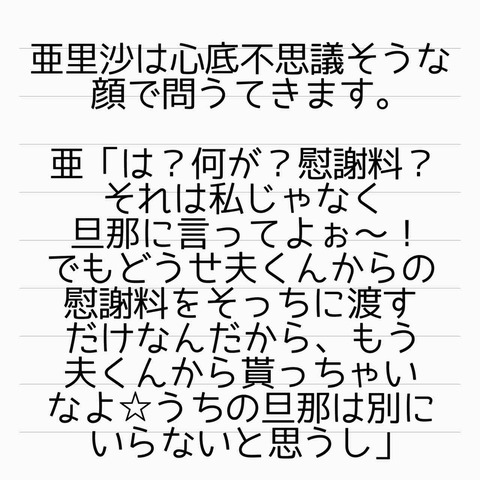 亜里沙は心底不思議そうな
顔で問うてきます。
亜「は？何が？慰謝料？
それは私じゃなく
旦那に言ってよぉ～！
でもどうせ夫くんからの
慰謝料をそっちに渡す
だけなんだから、もう
夫くんから貰っちゃい
なよ☆うちの旦那は別に
いらないと思うし」